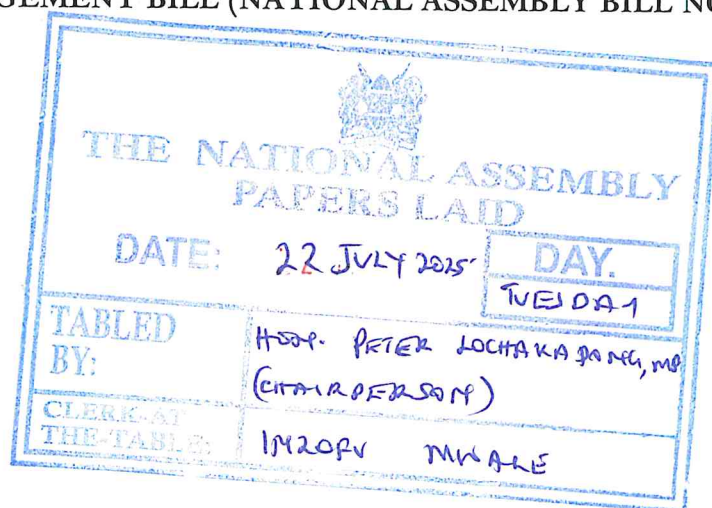 GEMENT BILL (NATIONAL ASSEMBLY BILL NO
THE NATIONAL ASSEMBLY
PAPERS LAID
DATE: 22 JULY 2025 DAY.
TUESDAY
TABLED
BY:
HON. PETER LOCHAKAPONG, MP
(CHAIRPERSON)
CLERK-AT
THE-TABLE:
MWALE